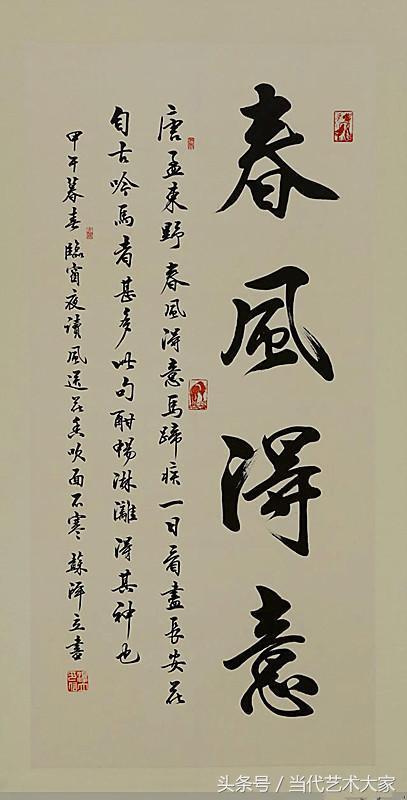 春風得意
唐孟東野春風得意馬蹄疾一日看盡長安花
自古吟馬者甚多此句酣暢淋灕得其神也
甲午暮春臨窗夜讀風送花香吹面不寒蘇澤立書
头条号／当代艺术大家